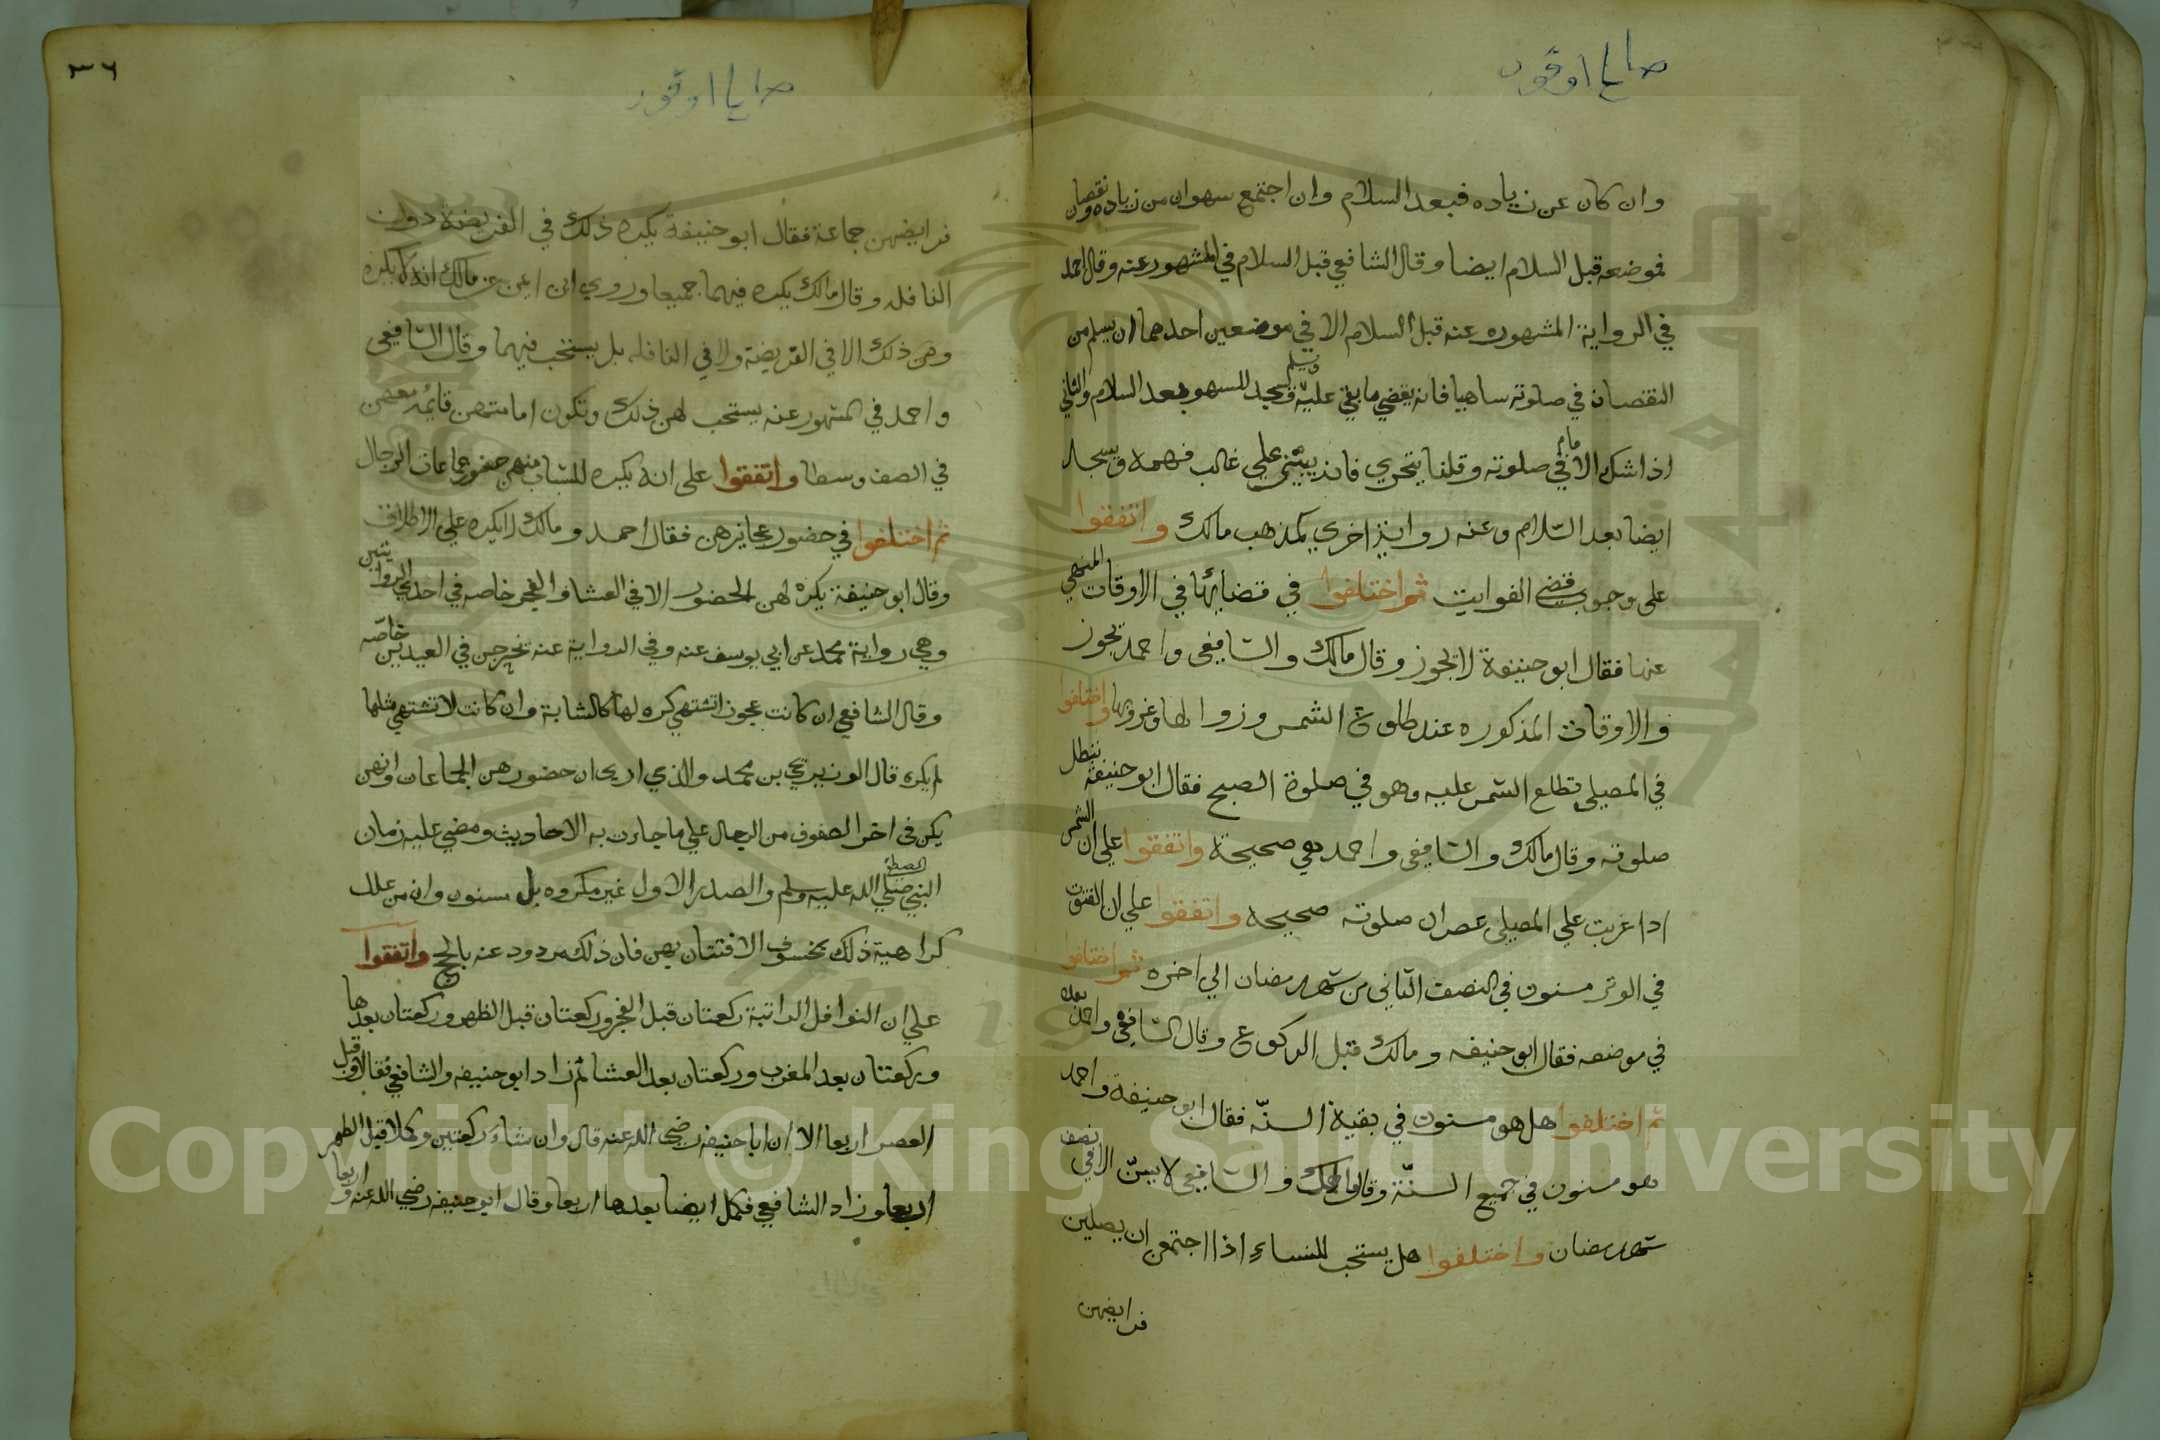 وان كان عن زياده فبعد السلام وان اجتمع سهوان من زياده ونقصان
فموضعه قبل السلام ايضا وقال الشافعي قبل السلام في المشهور عنه وقال احمد
في الرواية المشهوره عنه قبل السلام الا في موضعين احدهما ان يسلم من
النقصان في صلوته ساهيا فانه يقضي ما بقي عليه ويسلم ويسجد للسهو بعد السلام والثاني
اذا شك الامام في صلوته وقلنا يتحري فانه يبني علي غالب فهمه ويسجد
ايضا بعد السلام وعنه رواية اخري كمذهب مالك واتفقوا
على وجوب قضي الفوايت ثم اختلفوا في قضائها في الاوقات المنهي
عنها فقال ابو حنيفة لا تجوز وقال مالك والشافعي واحمد تجوز
والاوقات المذكوره عند طلوع الشمس وزوالها وغروبها واختلفوا
في المصلي تطلع الشمس عليه وهو في صلوة الصبح فقال ابو حنيفة تبطل
صلوته وقال مالك والشافعي واحمد هي صحيحة واتفقوا علي ان الشمس
اذا غربت علي المصلي عصرا ان صلوته صحيحة واتفقوا علي ان القنوت
في الوتر مسنون في النصف الثاني من شهر رمضان الي اخره ثم اختلفوا
في موضعه فقال ابو حنيفه ومالك قبل الركوع وقال الشافعي واحمد بعده
ثم اختلفوا هل هو مسنون في بقية السنة فقال ابو حنيفة واحمد
هو مسنون في جميع السنة وقال مالك والشافعي لا يسن الا في نصف
شهر رمضان واختلفوا هل يستحب للنساء اذا اجتمعن ان يصلين
فرايضهن
٣٦
فرايضهن جماعة فقال ابو حنيفة يكره ذلك في الفريضة دون
النافله وقال مالك يكره فيهما جميعا وروي ابن ايمن عن مالك انه لا يكره
لهن ذلك لا في الفريضة ولا في النافله بل يستحب فيهما وقال الشافعي
واحمد في المشهور عنه يستحب لهن ذلك وتكون امامتهن قايمه معهن
في الصف وسطا واتفقوا على انه يكره للشباب منهن حضور جماعات الرجال
ثم اختلفوا في حضور عجايزهن فقال احمد ومالك لا يكره علي الاطلاق
وقال ابو حنيفة يكره لهن الحضور الا في العشا والفجر خاصه في احدي الروايتين
وهي رواية محمد عن ابي يوسف عنه وفي الرواية عنه تخرجن في العيدين خاصه
وقال الشافعي ان كانت عجوزا تشتهي كره لها كالشابة وان كانت لا تشتهي مثلها
لم يكره قال الوزير يحيي بن محمد والذي اري ان حضورهن الجماعات وانهن
يكن في اخر الصفوف من الرجال علي ما جاءت به الاحاديث ومضي عليه زمان
النبي المصطفى صلي الله عليه وسلم والصدر الاول غير مكروه بل مسنون وان من علل
كراهية ذلك بخوف الافتتان بهن فان ذلك مردود عنه بالحج واتفقوا
علي ان النوافل الراتبة ركعتان قبل الفجر وركعتان قبل الظهر وركعتان بعدها
وركعتان بعد المغرب وركعتان بعد العشا ثم زاد ابو حنيفه والشافعي فقالا وقبل
العصر اربعا الا ان ابا حنيفه رضي الله عنه قال وان شاء ركعتين وكملا قبل الظهر
اربعا وزاد الشافعي فكمل ايضا بعدها اربعا وقال ابو حنيفه رضي الله عنه واربعا
Copyright © King Saud University
1957